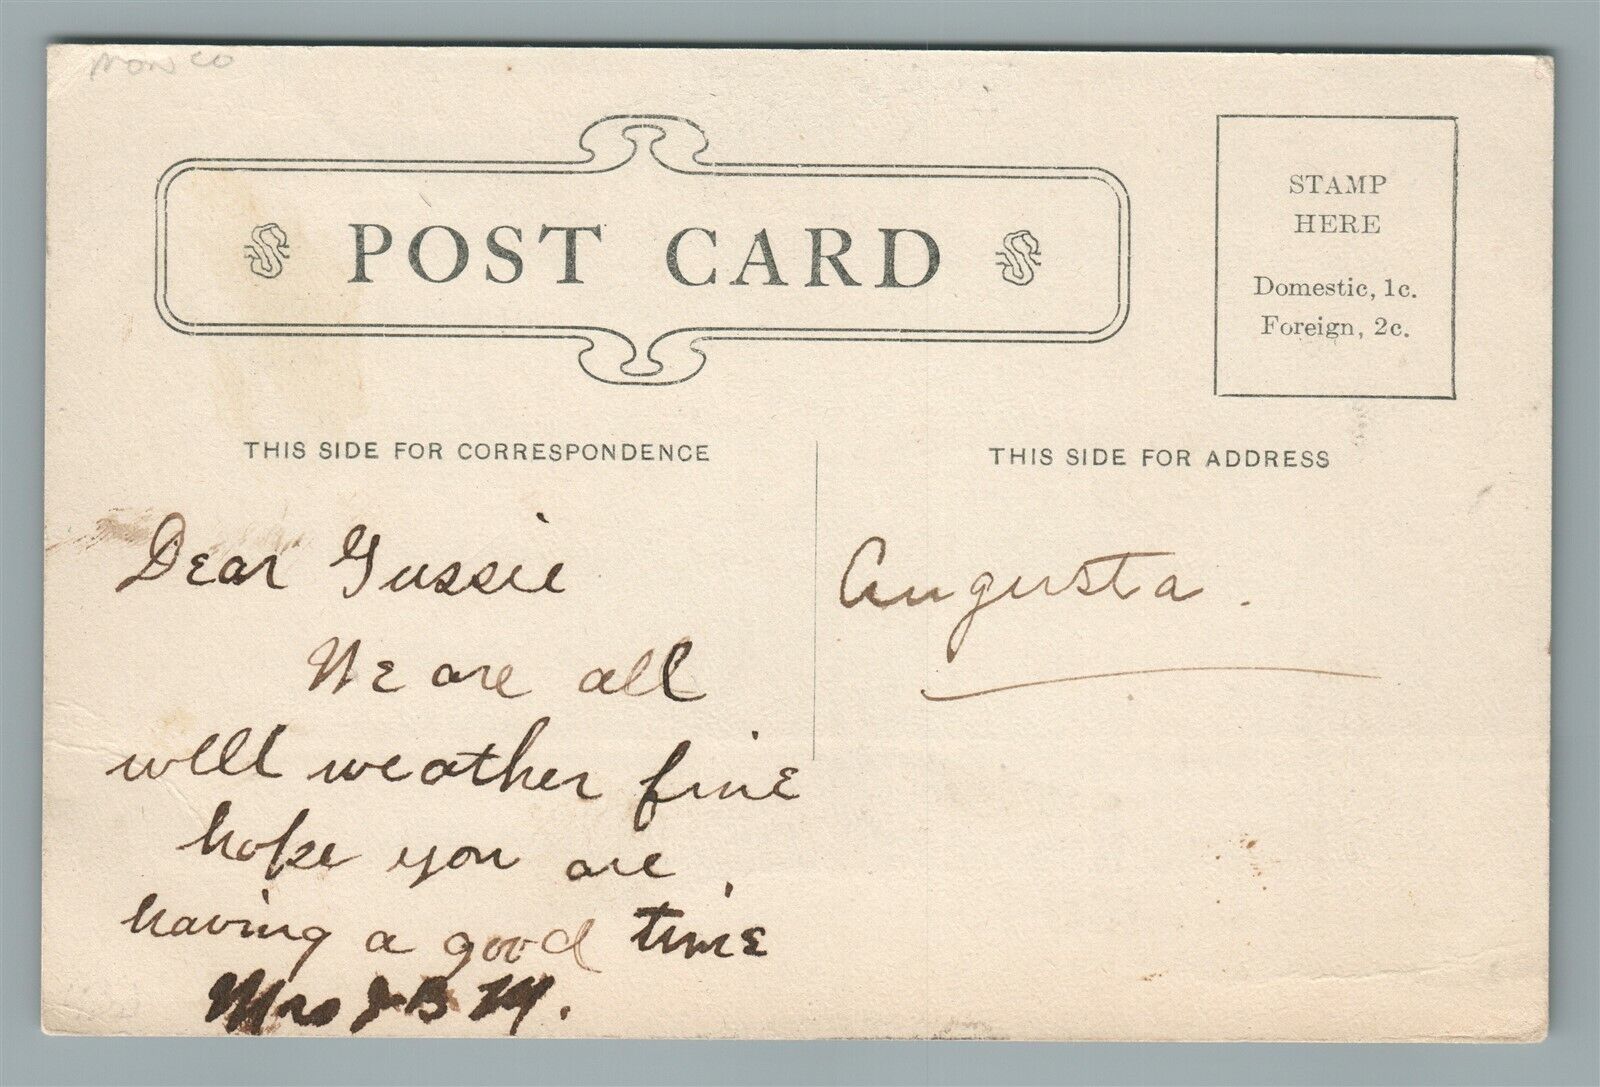 POST CARD
STAMP
HERE
Domestic, 1c.
Foreign, 2c.
THIS SIDE FOR CORRESPONDENCE
THIS SIDE FOR ADDRESS
Dear Gussie
We are all
well weather fine
hope you are
having a good time
Mrs J B M.
Augusta.